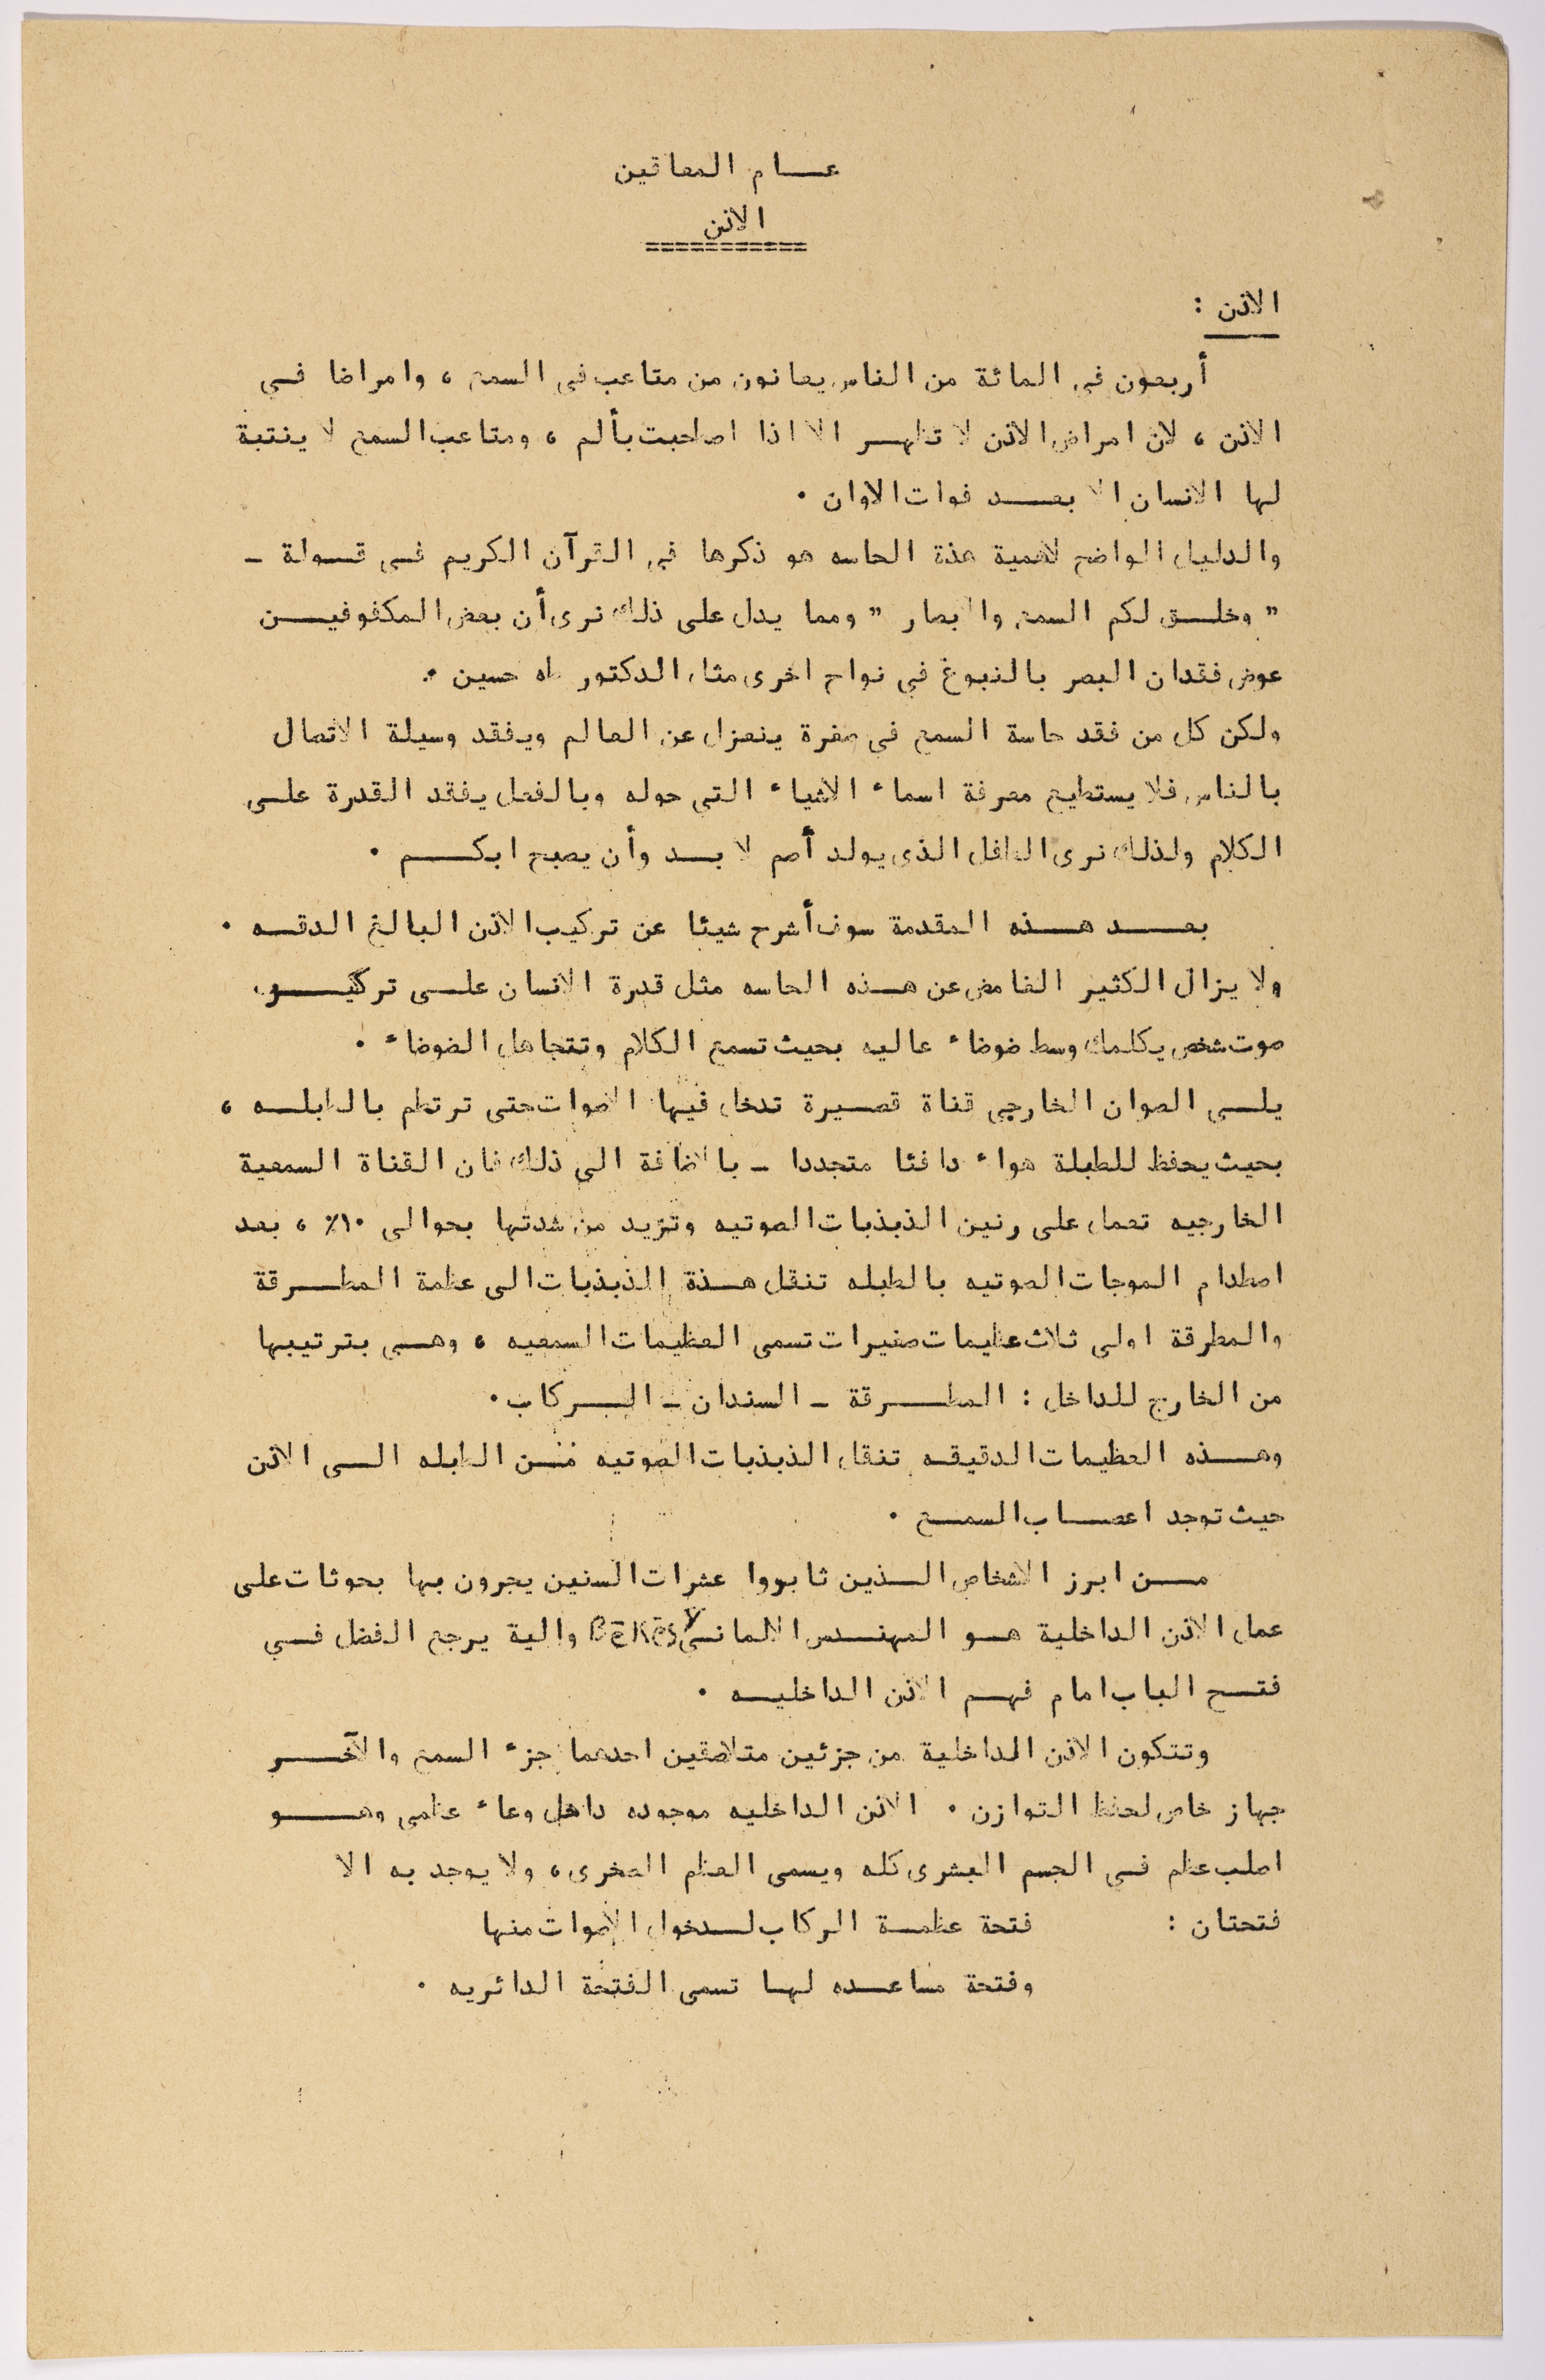 عام المعاقين
الاذن
===========
الاذن :
أربعون فى المائة من الناس يعانون من متاعب فى السمع ، وامراضا فى
الاذن ، لان امراض الاذن لا تظهر الا اذا اصاحبت بألم ، ومتاعب السمع لا ينتبة
لها الانسان الا بعد فوات الاوان .
والدليل الواضح لاهمية هذة الحاسه هو ذكرها فى القرآن الكريم فى قولة -
" وخلق لكم السمع والابصار " ومما يدل على ذلك نرى أن بعض المكفوفين
عوض فقدان البصر بالنبوغ فى نواح اخرى مثل الدكتور طه حسين .
ولكن كل من فقد حاسة السمع فى صغرة ينعزل عن العالم ويفقد وسيلة الاتصال
بالناس فلا يستطيع معرفة اسماء الاشياء التى حوله وبالفعل يفقد القدرة على
الكلام ولذلك نرى الطفل الذى يولد أصم لا بد وأن يصبح ابكم .
بعد هذه المقدمة سوف أشرح شيئا عن تركيب الاذن البالغ الدقه .
ولا يزال الكثير الغامض عن هذه الحاسه مثل قدرة الانسان على تركيز
صوت شخص يكلمك وسط ضوضاء عاليه بحيث تسمع الكلام وتتجاهل الضوضاء .
يلى الصوان الخارجى قناة قصيرة تدخل فيها الاصوات حتى ترتطم بالطبله ،
بحيث يحفظ للطبلة هواء دافئا متجددا - بالاضافة الى ذلك فان القناة السمعية
الخارجيه تعمل على رنين الذبذبات الصوتيه وتزيد من شدتها بحوالى ١٠٪ ، بعد
اصطدام الموجات الصوتيه بالطبله تنقل هذة الذبذبات الى عظمة المطرقة
والمطرقة اولى ثلاث عظيمات صغيرات تسمى العظيمات السمعيه ، وهى بترتيبها
من الخارج للداخل : المطرقة - السندان - الركاب .
وهذه العظيمات الدقيقه تنقل الذبذبات الصوتيه من الطبله الى الاذن
حيث توجد اعصاب السمع .
من ابرز الاشخاص الذين ثابروا عشرات السنين يجرون بها بحوثات على
عمل الاذن الداخلية هو المهندس الالمانى Bēkēsy والية يرجع الفضل فى
فتح الباب امام فهم الاذن الداخليه .
وتتكون الاذن الداخلية من جزئين متلاصقين احدهما جزء السمع والآخر
جهاز خاص لحفظ التوازن . الاذن الداخليه موجوده داخل وعاء عظمى وهو
اصلب عظم فى الجسم البشرى كله ويسمى العظم الصخرى ، ولا يوجد به الا
فتحتان : فتحة عظمة الركاب لدخول الاصوات منها
وفتحة مساعده لها تسمى الفتحة الدائريه .